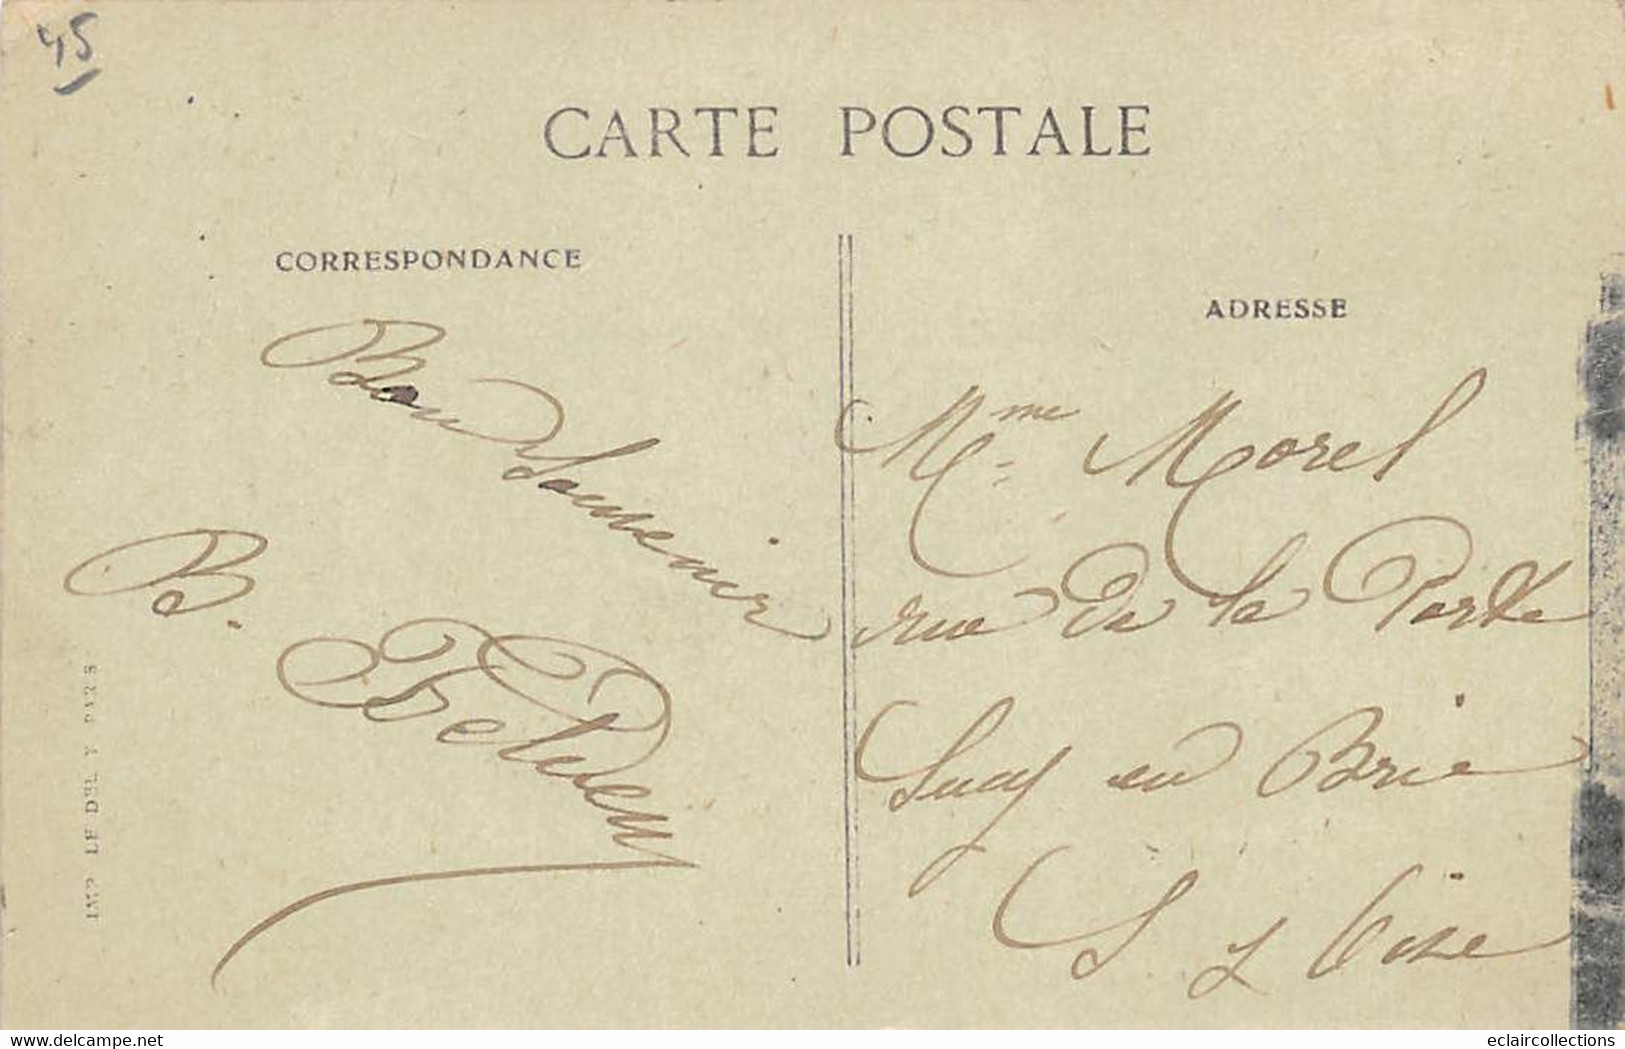 45
CARTE POSTALE
CORRESPONDANCE
Bon Souvenir
B.
IMP. LE DELEY PARIS
ADRESSE
Mme Morel
rue de la Porte
Sucy en Brie
S. & Oise
delcampe.net
eclaircollections